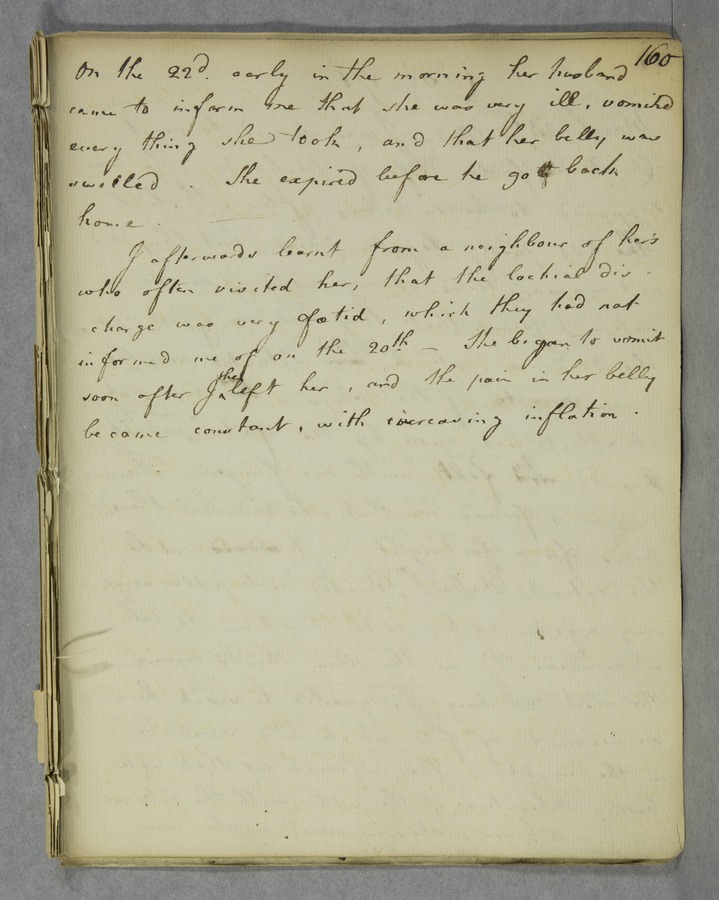 160
On the 22d. early in the morning her husband
came to inform me that she was very ill, vomited
every thing she took, and that her belly was
swelled. She expired before he got back
home.
I afterwards learnt from a neighbour of her's
who often visited her, that the lochial dis-
=charge was very fœtid, which they had not
informed me of on the 20th — She began to vomit
soon after I then left her, and the pain in her belly
became constant, with increasing inflation.